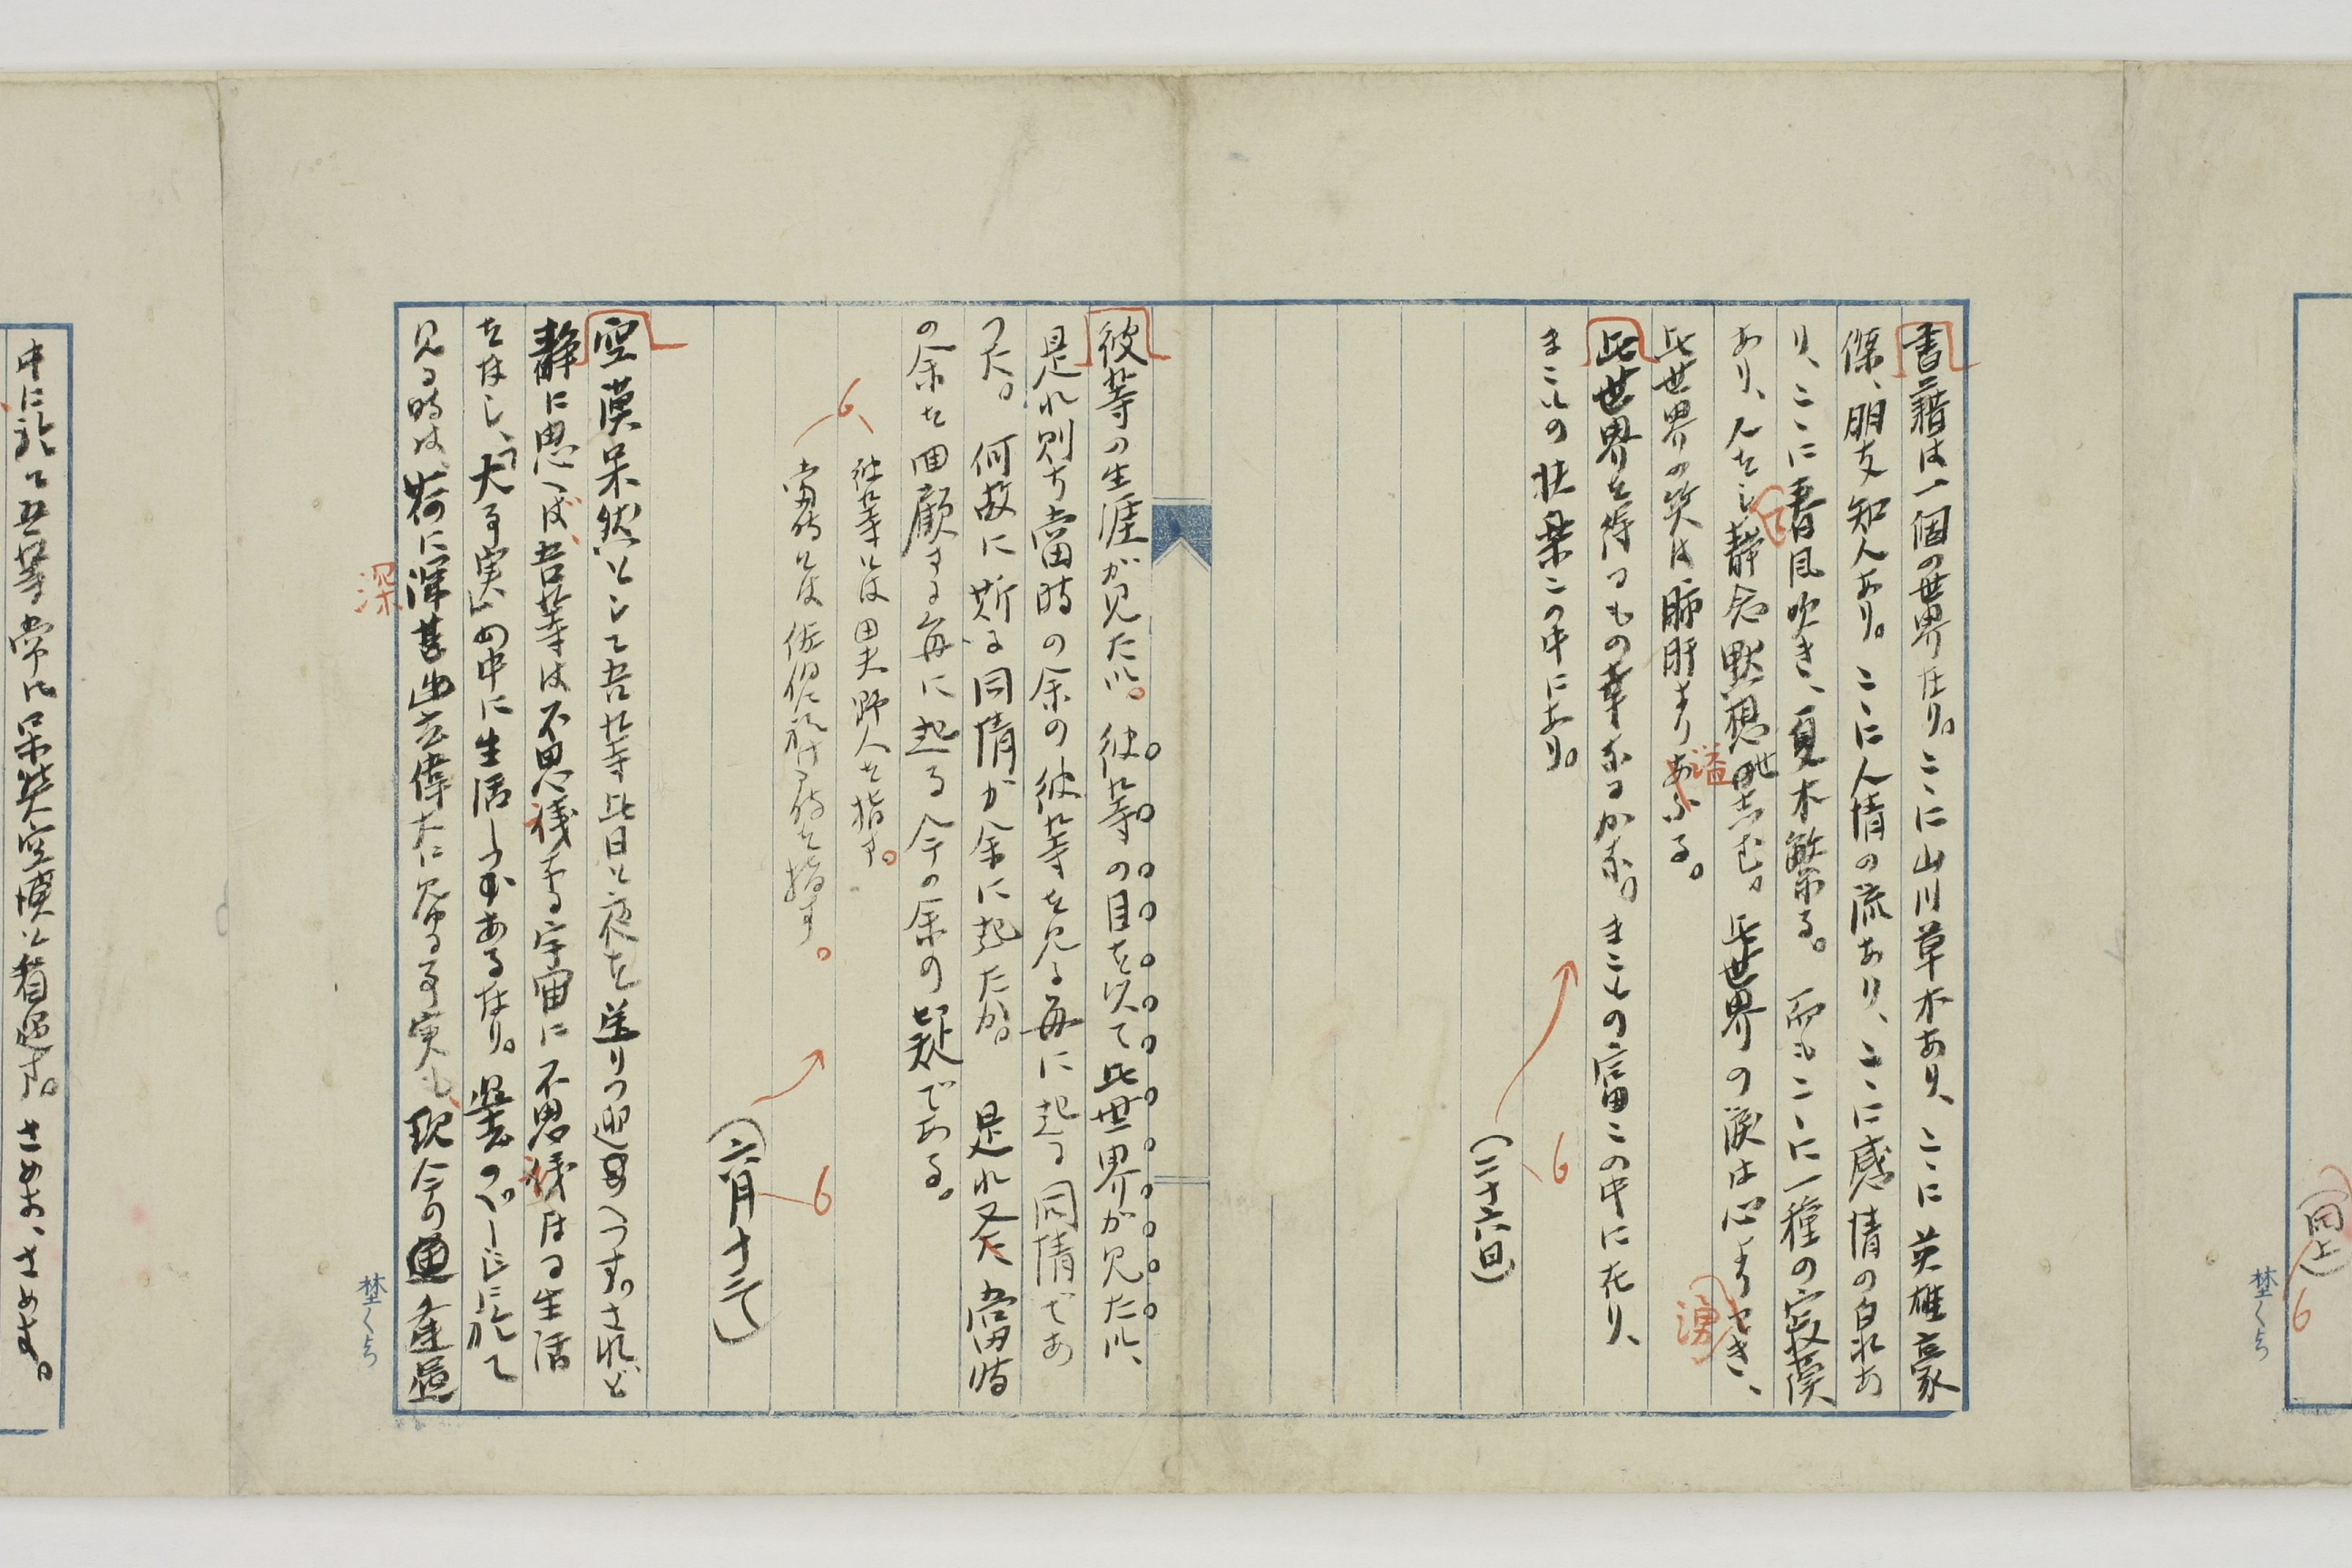 (同上)
6
埜くち
書籍は一個の世界在り。こゝに山川草木あり、こゝに英雄豪
傑、朋友知人あり。こゝに人情の流あり、こゝに感情の泉あ
り、こゝに春風吹き、夏木繁る。而もこゝに一種の寂莫
あり、人をし静念黙想せしむ。此世界の涙は心よりわき、
湧
此世界の笑は肺肝よりあふる。
溢
此世界を得るもの幸なるかな。まことの富この中に在り、
まことの壮楽この中にあり。
(二十六日)
6
彼等の生涯が見たい。彼等の目を以て此世界が見たい、
是れ則ち當時の余の彼等を見る毎に起る同情であ
つた。何故に斯る同情が余に起たか。是れ又た當時
の余を回顧する毎に起る今の余の疑である。
彼等とは田夫野人を指す。
6
當時とは佐伯に於ける時を指す。
(六月十三て)
6
空漠呆然として吾等此日と夜を送りつ迎へつす。されど
静に思へば、吾等は不思議なる宇宙に不思議なる生活
をなし、大事実の中に生活しつゝあるなり。歴史のページに於て
見る時は、荷に深甚幽玄偉大に見ゆる事実も、現今の
深
埜くち
中に於て吾等常に呆然空漠と看過す。さめよ、さめよ。